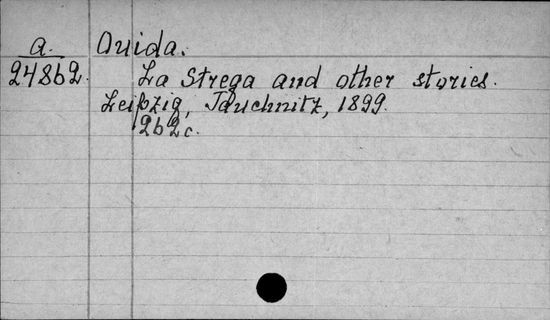 a. Ouida.
24862. La Strega and other stories.
Leipzig, Tauchnitz, 1899.
262 c.